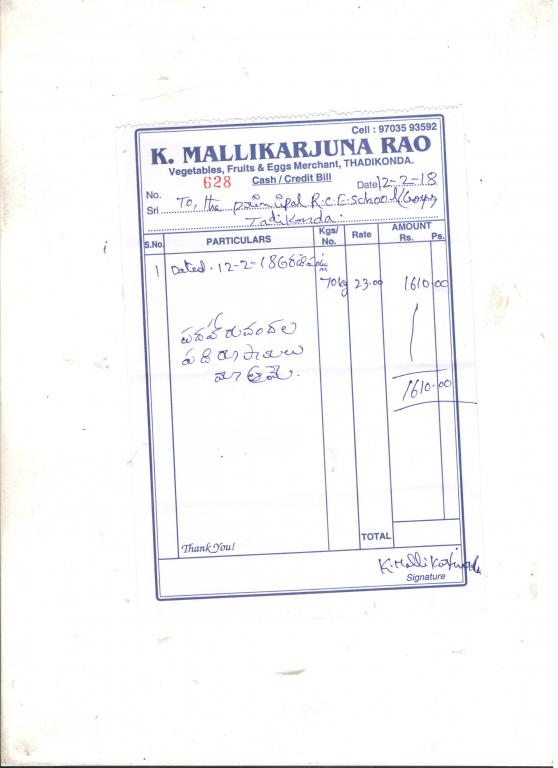 Cell : 97035 93592
K. MALLIKARJUNA RAO
Vegetables, Fruits & Eggs Merchant, THADIKONDA.
628 Cash / Credit Bill
No. Date 12-2-18
Sri To, the principal R.C.E. School (Boys)
Tadikonda.
S.No. PARTICULARS Kgs/ No. Rate AMOUNT Rs. Ps.
1 Dated. 12-2-18
70 kg 23.00 1610.00
పదహారువందల
పది రూపాయలు
మాత్రమే.
1610.00
TOTAL
Thank You!
K. Mallikarjuna
Signature